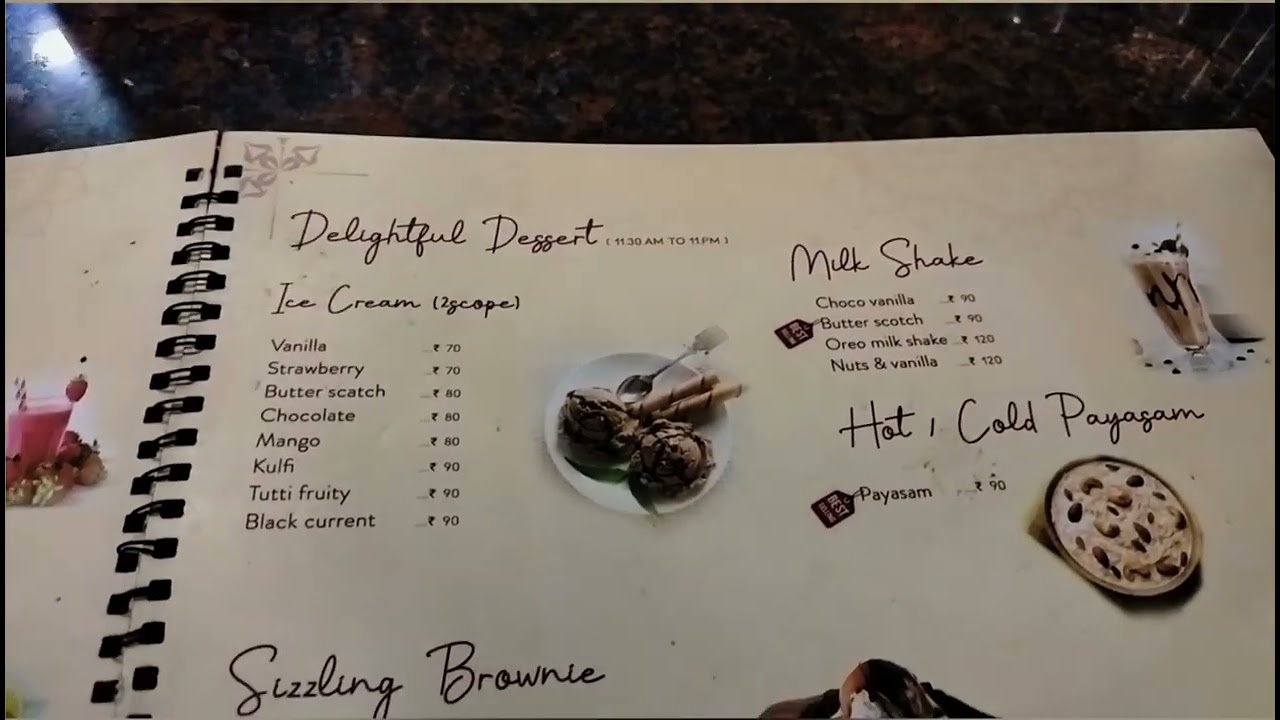 Delightful Dessert ( 11.30.AM TO 11.PM )
Ice Cream (2scope)
Vanilla ₹ 70
Strawberry ₹ 70
Butter scatch ₹ 80
Chocolate ₹ 80
Mango ₹ 80
Kulfi ₹ 90
Tutti fruity ₹ 90
Black current ₹ 90
Milk Shake
Choco vanilla ₹ 90
BEST Butter scotch ₹ 90
Oreo milk shake ₹ 120
Nuts & vanilla ₹ 120
Hot / Cold Payasam
BEST SELLING Payasam ₹ 90
Sizzling Brownie